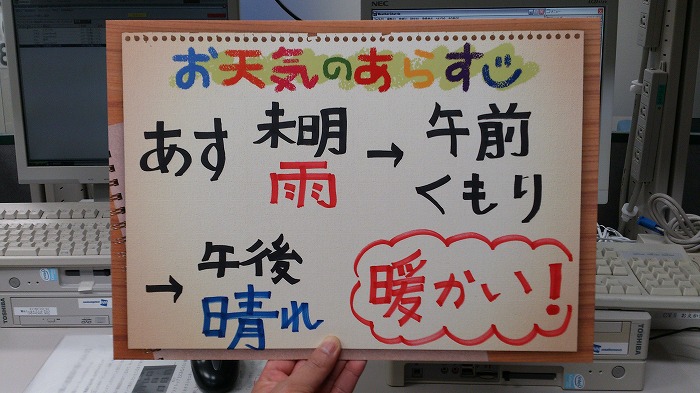 お天気のあらすじ
あす 未明 雨 → 午前 くもり
→ 午後 晴れ
暖かい!
NEC
TOSHIBA
TOSHIBA